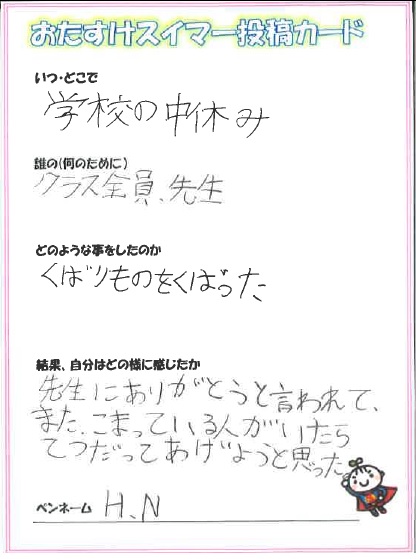 おたすけスイマー投稿カード
いつ・どこで
学校の中休み
誰の(何のために)
クラス全員、先生
どのような事をしたのか
くばりものをくばった
結果、自分はどの様に感じたか
先生にありがとうと言われて、
また、こまっている人がいたら
てつだってあげようと思った。
ペンネーム H.N